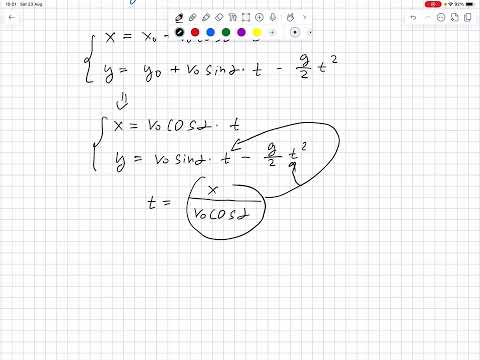 10:01 Sat 23 Aug
92%
x = x₀
y = y₀ + v₀ sinα · t − g/2 t²
⇓
x = v₀ cosα · t
y = v₀ sinα · t − g/2 t²
t = x / v₀ cosα